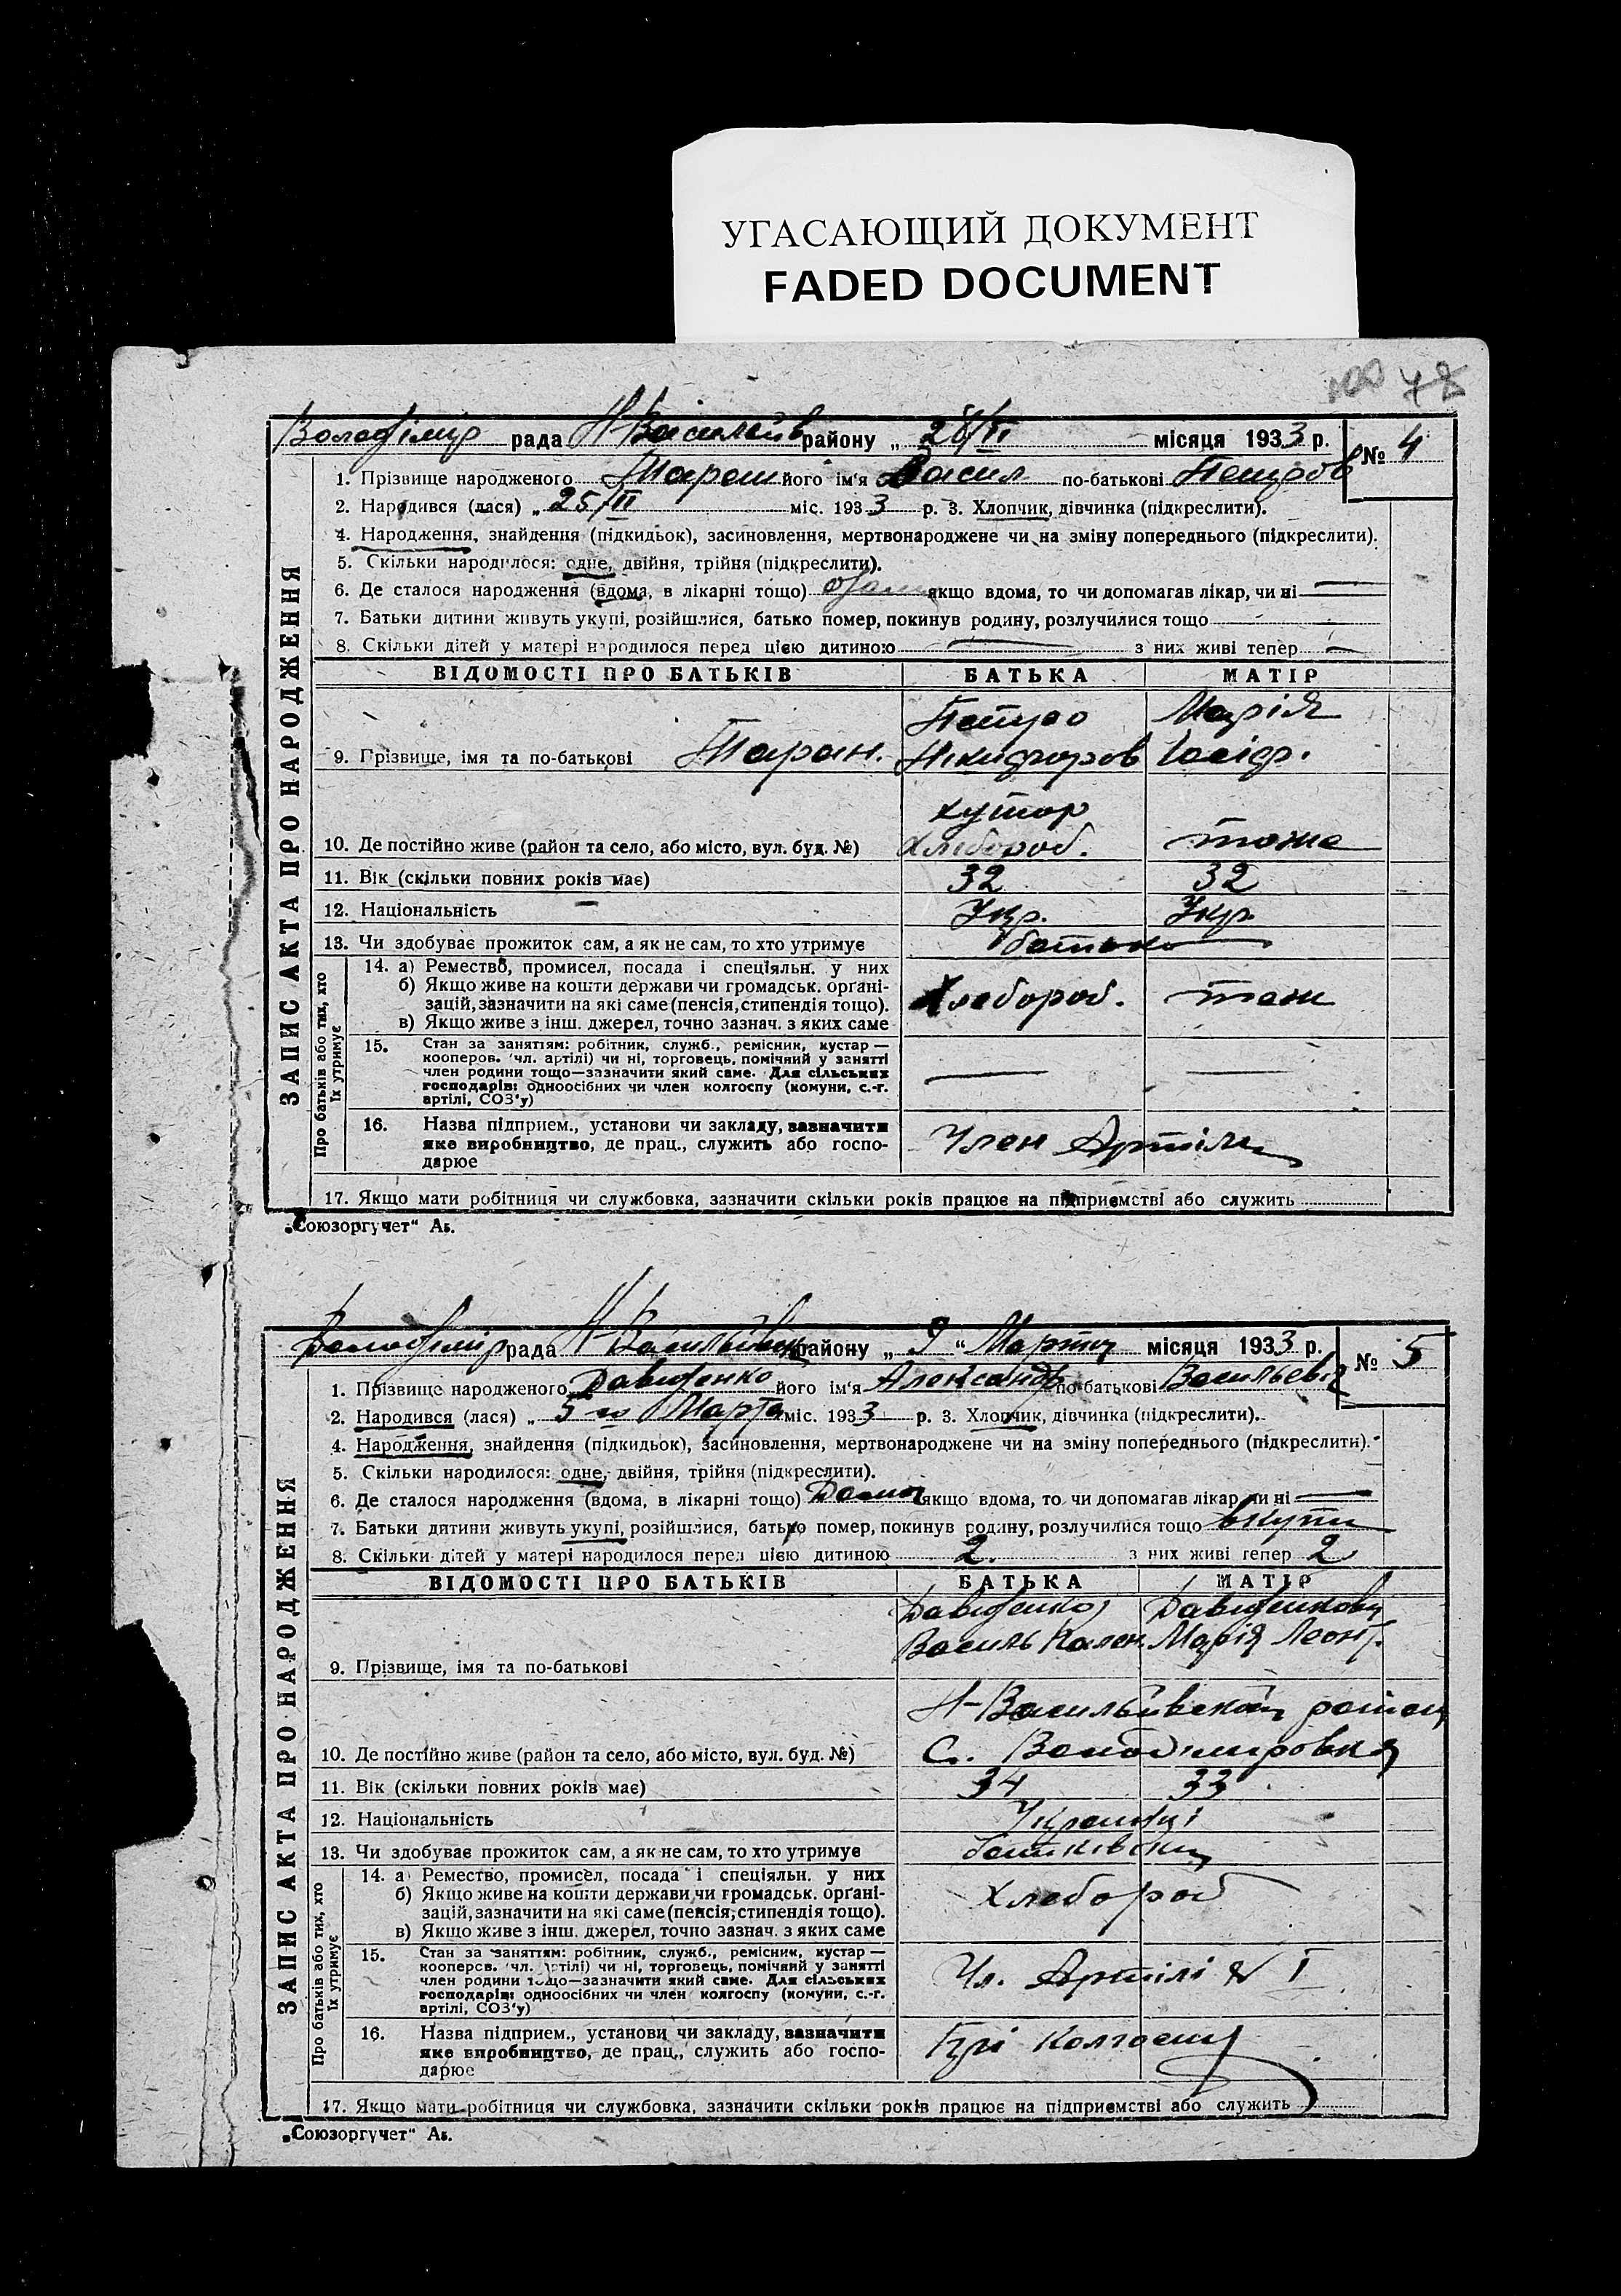 УГАСАЮЩИЙ ДОКУМЕНТ
FADED DOCUMENT
78
Володімір рада Н Васильїв району „ 28/II місяця 1933 р. № 4
ЗАПИС АКТА ПРО НАРОДЖЕННЯ
1. Прізвище народженого Таран його ім'я Васил по-батькові Петров
2. Народився (лася) „ 25/II міс. 1933 р. 3. Хлопчик, дівчинка (підкреслити).
4. Народження, знайдення (підкидьок), засиновлення, мертвонароджене чи на зміну попереднього (підкреслити).
5. Скільки народилося: одне, двійня, трійня (підкреслити).
6. Де сталося народження (вдома, в лікарні тощо) якщо вдома, то чи допомагав лікар, чи ні —
7. Батьки дитини живуть укупі, розійшлися, батько помер, покинув родину, розлучилися тощо
8. Скільки дітей у матері народилося перед цією дитиною — з них живі тепер —
ВІДОМОСТІ ПРО БАТЬКІВ БАТЬКА МАТІР
Петро Марія
9. Прізвище, імя та по-батькові Таран. Никифоров Йосіф.
хутор
10. Де постійно живе (район та село, або місто, вул. буд. №) Хлебороб. тоже
11. Вік (скільки повних років має) 32 32
12. Національність Укр. Укр.
13. Чи здобуває прожиток сам, а як не сам, то хто утримує батько
Про батьків або тих, хто їх утримує
14. а) Ремество, промисел, посада і спеціяльн. у них
б) Якщо живе на кошти держави чи громадськ. органі-
зацій, зазначити на які саме (пенсія, стипендія тощо). Хлебороб. тоже
в) Якщо живе з інш. джерел, точно зазнач. з яких саме
15. Стан за заняттям: робітник, служб., ремісник, кустар —
кооперов. (чл. артілі) чи ні, торговець, помічний у занятті
член родини тощо—зазначити який саме. Для сільських
господарів: одноосібних чи член колгоспу (комуни, с.-г.
артілі, СОЗ'у)
16. Назва підприєм., установи чи закладу, зазначити
яке виробництво, де прац., служить або госпо- Член Артіли
дарює
17. Якщо мати робітниця чи службовка, зазначити скільки років працює на підприємстві або служить
„Союзоргучет“ Аг.
Володімір рада Н-Васильївск району „ 9 “ Марта місяця 1933 р. № 5
ЗАПИС АКТА ПРО НАРОДЖЕННЯ
1. Прізвище народженого Давиденко його ім'я Александр по-батькові Васильевіч
2. Народився (лася) „ 5 го Марта міс. 1933 р. 3. Хлопчик, дівчинка (підкреслити).
4. Народження, знайдення (підкидьок), засиновлення, мертвонароджене чи на зміну попереднього (підкреслити).
5. Скільки народилося: одне, двійня, трійня (підкреслити).
6. Де сталося народження (вдома, в лікарні тощо) Дома якщо вдома, то чи допомагав лікар, чи ні —
7. Батьки дитини живуть укупі, розійшлися, батько помер, покинув родину, розлучилися тощо вкупи
8. Скільки дітей у матері народилося перед цією дитиною 2. з них живі тепер 2
ВІДОМОСТІ ПРО БАТЬКІВ БАТЬКА МАТІР
Давиденко Давиденкова
Василь Кален. Марія Леонт.
9. Прізвище, імя та по-батькові
Н-Васильївской район
10. Де постійно живе (район та село, або місто, вул. буд. №) С. Володимировка
11. Вік (скільки повних років має) 34 33
12. Національність Украинці
13. Чи здобуває прожиток сам, а як не сам, то хто утримує
Про батьків або тих, хто їх утримує
14. а) Ремество, промисел, посада і спеціяльн. у них
б) Якщо живе на кошти держави чи громадськ. органі- Хлебороб
зацій, зазначити на які саме (пенсія, стипендія тощо).
в) Якщо живе з інш. джерел, точно зазнач. з яких саме
15. Стан за заняттям: робітник, служб., ремісник, кустар —
кооперов. (чл. артілі) чи ні, торговець, помічний у занятті
член родини тощо—зазначити який саме. Для сільських Чл. Артілі № I
господарів: одноосібних чи член колгоспу (комуни, с.-г.
артілі, СОЗ'у)
16. Назва підприєм., установи чи закладу, зазначити
яке виробництво, де прац., служить або госпо- Прі Колгоспу
дарює
17. Якщо мати робітниця чи службовка, зазначити скільки років працює на підприємстві або служить
„Союзоргучет“ Аг.